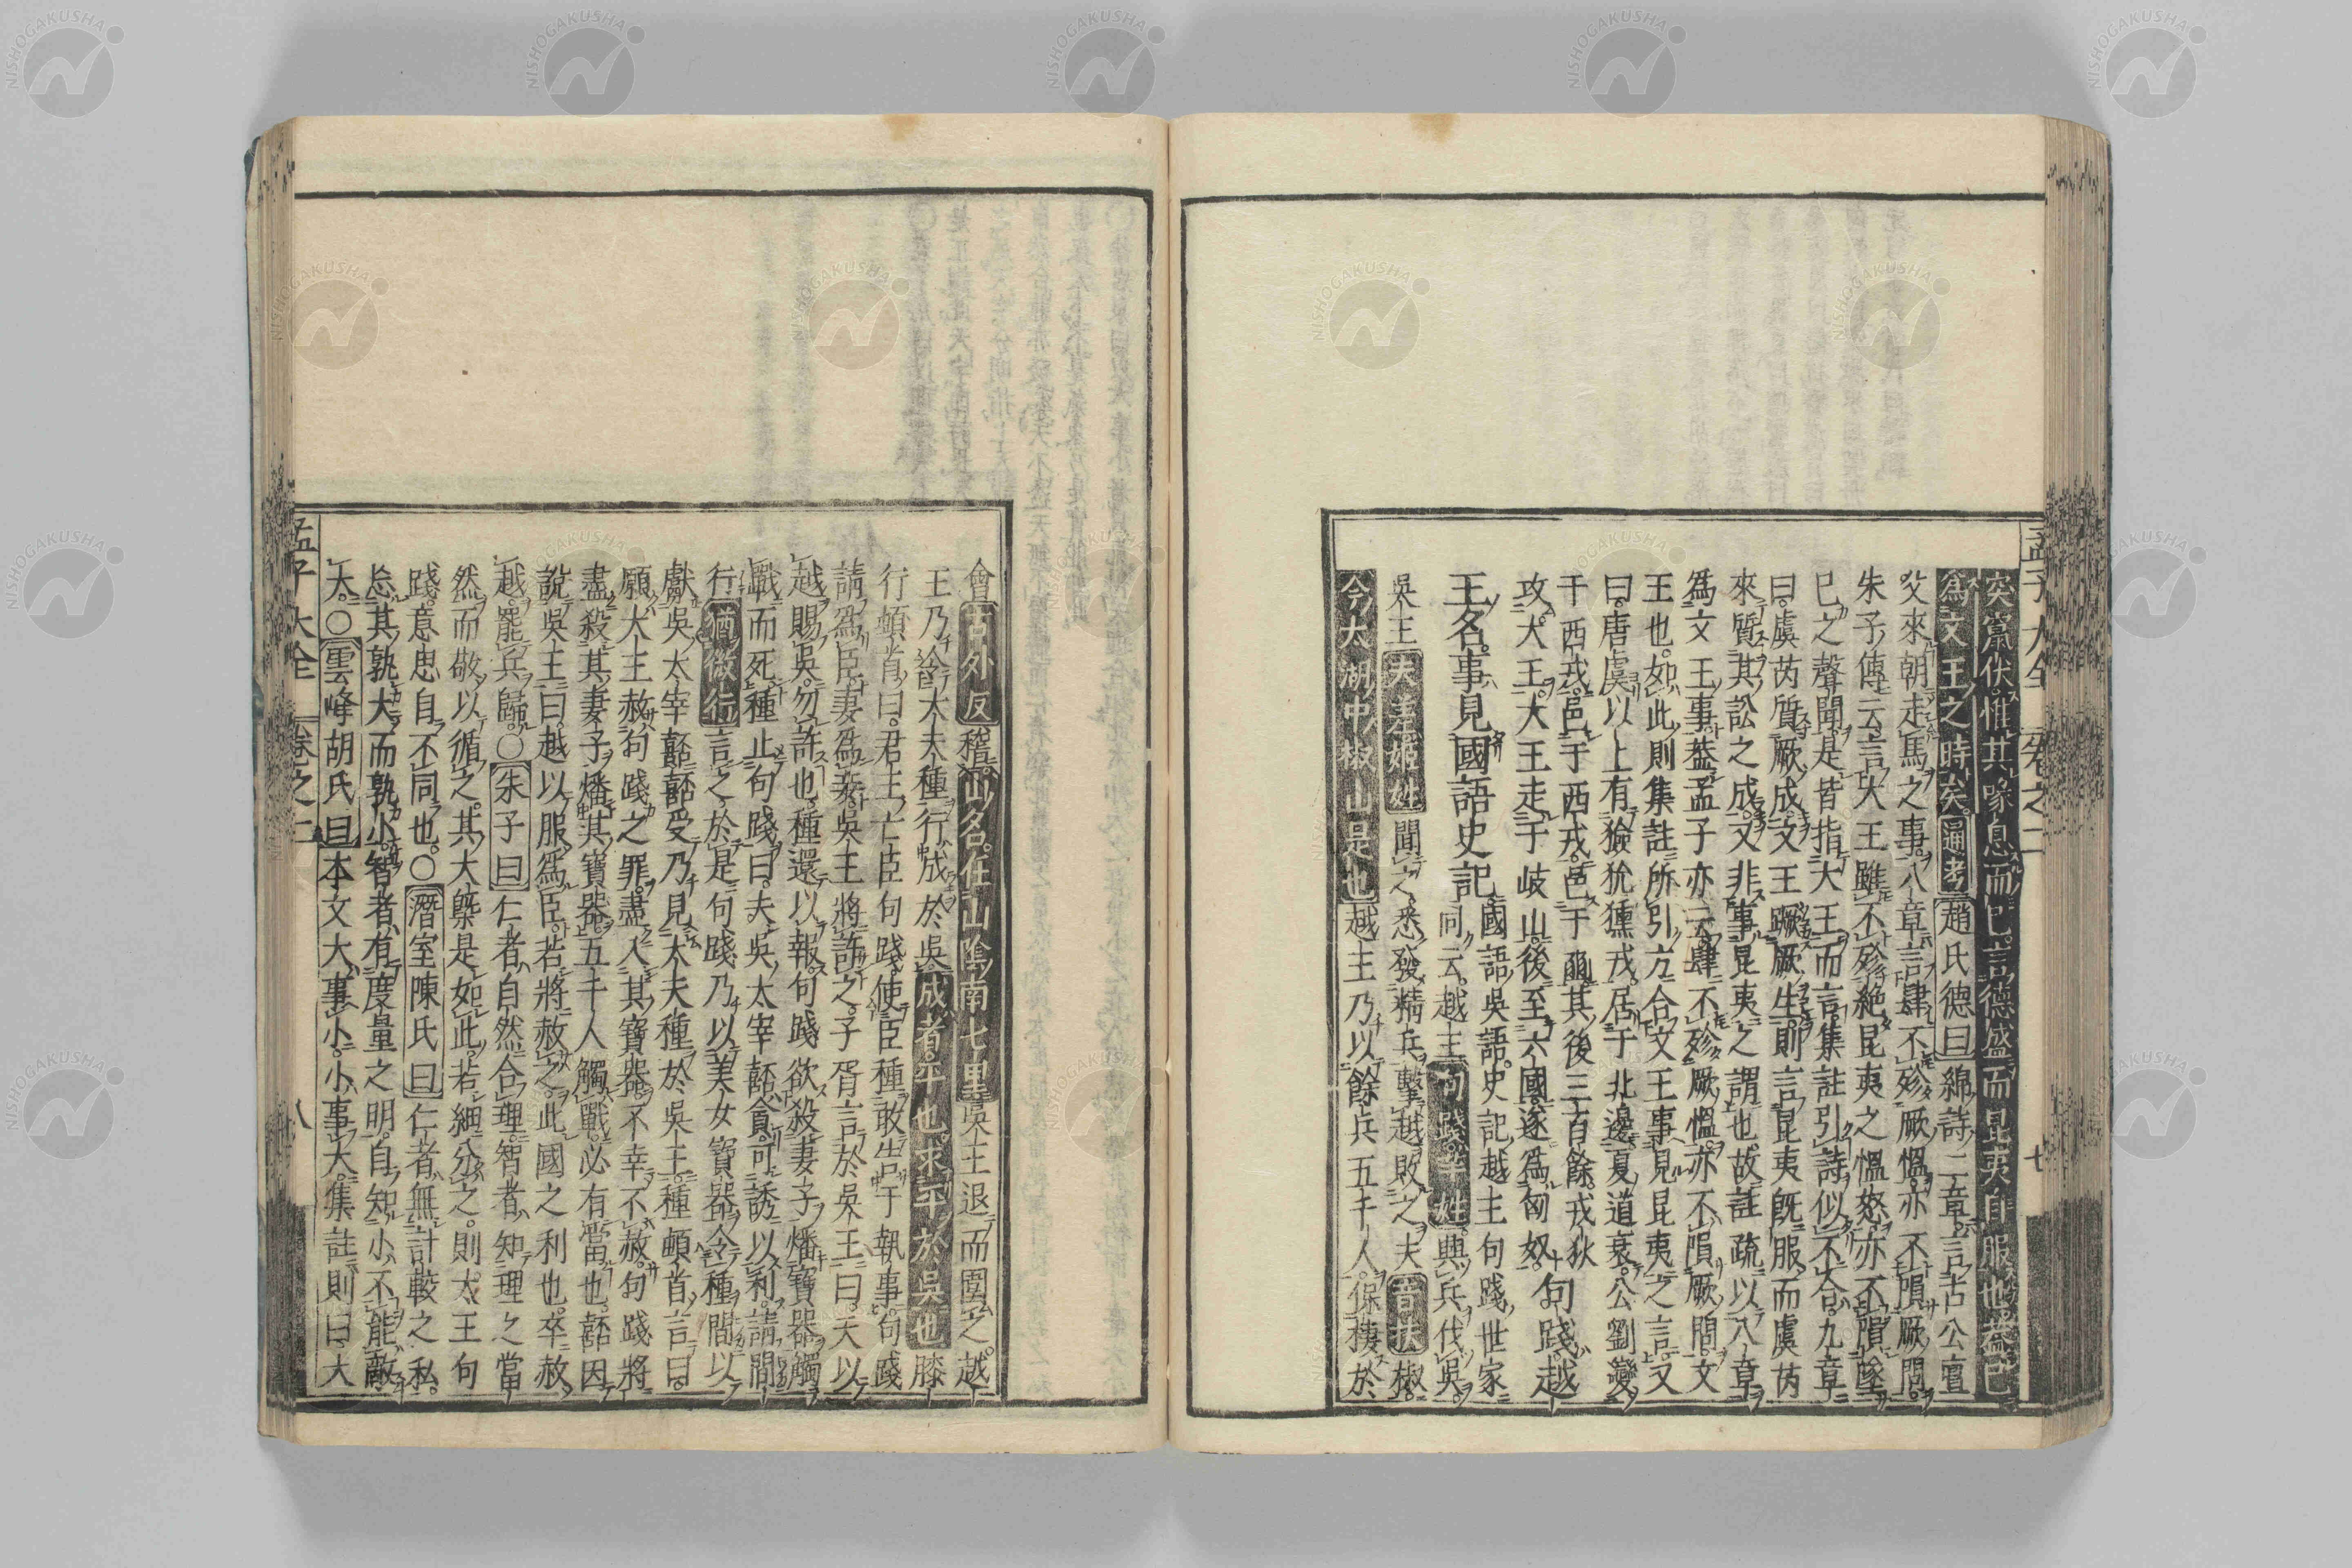 孟子大全 卷之二 七
突竄伏惟其喙息而已言德盛而昆夷自服也蓋已
爲文王之時矣通考趙氏德曰綿詩二章言古公亶
父來朝走馬之事八章言肆不殄厥慍亦不隕厥問
朱子傳云言大王雖不殄絶昆夷之慍怒亦不隕墜
己之聲聞是皆指大王而言集註引詩似不合九章
曰虞芮質厥成文王蹶厥生則言昆夷既服而虞芮
來質其訟之成又非事昆夷之謂也故註疏以八章
爲文王事蓋孟子亦云肆不殄厥慍亦不隕厥問文
王也如此則集註所引方合文王事見昆夷之言又
曰唐虞以上有獫狁獯戎居于北邊夏道衰公劉變
于西戎邑于西戎邑于豳其後三百餘戎狄
攻大王大王走于岐山後至六國遂爲匈奴句踐越
王名事見國語史記國語吳語史記越王句踐世家
同云越王句踐羋姓興兵伐吳
吳王夫差姬姓聞之悉發精兵擊越敗之夫音扶椒
今太湖中椒山是也越王乃以餘兵五千人保棲於
會古外反稽山名在山陰南七里吳王退而圍之越
王乃令大夫種行成於吳成者平也求平於吳也膝
行頓首曰君王亡臣句踐使臣種敢告于執事句踐
請爲臣妻爲妾吳王將許之子胥言於吳王曰天以
越賜吳勿許也種還以報句踐欲殺妻子燔寶器觸
戰而死種止句踐曰夫吳太宰嚭貪可誘以利請間
行猶微行言之於是句踐乃以美女寶器令種間以
獻吳太宰嚭嚭受乃見大夫種於吳王種頓首言曰
願大王赦句踐之罪盡入其寶器不幸不赦句踐將
盡殺其妻子燔其寶器五千人觸戰必有當也嚭因
說吳王曰越以服爲臣若將赦之此國之利也卒赦
越罷兵歸○朱子曰仁者自然合理智者知理之當
然而敬以循之其大槩是如此若細分之則大王句
踐意思自不同也○潛室陳氏曰仁者無計較之私
忘其孰大而孰小智者有度量之明自知小不能敵
大○雲峰胡氏曰本文大事小小事大集註則曰大
孟子大全 卷之二 八